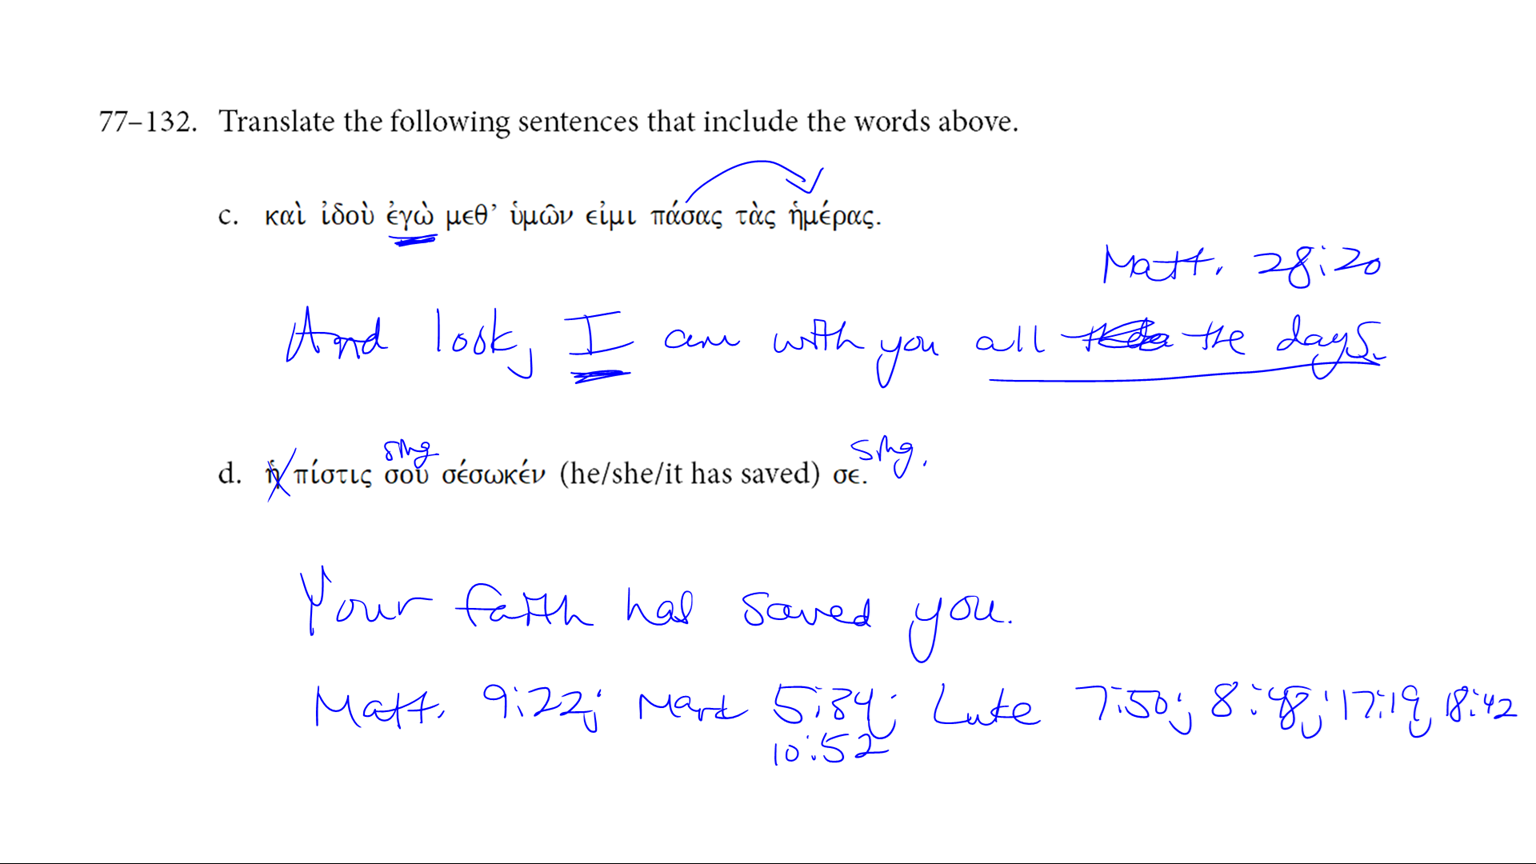 77–132. Translate the following sentences that include the words above.
c. καὶ ἰδοὺ ἐγὼ μεθ’ ὑμῶν εἰμι πάσας τὰς ἡμέρας.
Matt. 28:20
And look, I am with you all the days.
sing sing.
d. ἡ πίστις σου σέσωκέν (he/she/it has saved) σε.
Your faith has saved you.
Matt. 9:22; Mark 5:34; Luke 7:50; 8:48; 17:19, 18:42
10:52